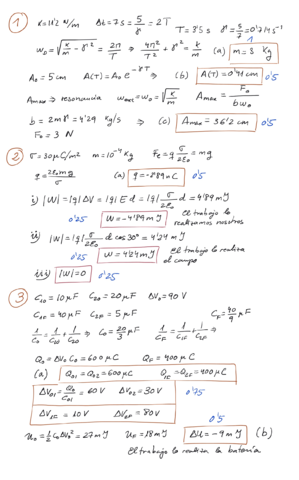 1 K=11'2 N/m Δt=7s=5/γ=2T T=3'5 s γ=5/7=0'714 s⁻¹
ω₀=√(k/m-γ²)=2π/T ⇒ 4π²/T²+γ²=k/m (a) m=3 Kg 1
A₀=5 cm A(T)=A₀e^(-γT) ⇒ (b) A(T)=0'41 cm 0'5
Amax ⇒ resonancia ωext=ω₀=√(k/m) Amax=F₀/bω₀
b=2mγ=4'29 Kg/s ⇒ (c) Amax=36'2 cm 0'5
F₀=3 N
2 σ=30μC/m² m=10⁻⁴Kg Fe=qσ/2ε₀=mg
q=2ε₀mg/σ (a) q=-0'89nC 0'5
i) |W|=|q|ΔV=|q|E d=|q|σ/2ε₀ d=4'89 mJ
0'25 W=-4'89mJ El trabajo lo
realizamos nosotros
ii) |W|=|q|σ/2ε₀ d cos30º=4'24 mJ
0'25 W=4'24mJ El trabajo lo realiza
el campo
iii) |W|=0 0'25
3 C₁₀=10μF C₂₀=20μF ΔV₀=90V
C₁F=40μF C₂F=5μF CF=40/9 μF
1/C₀=1/C₁₀+1/C₂₀ ⇒ C₀=20/3 μF 1/CF=1/C₁F+1/C₂F ⇒
Q₀=ΔV₀C₀=600μC QF=400μC
(a) Q₀₁=Q₀₂=600μC Q₁F=Q₂F=400μC
ΔV₀₁=Q₀/C₀₁=60V ΔV₀₂=30V 0'75
ΔV₁F=10V ΔV₂F=80V
0'5
U₀=½C₀ΔV₀²=27mJ UF=18mJ ΔU=-9mJ (b)
El trabajo lo realiza la batería